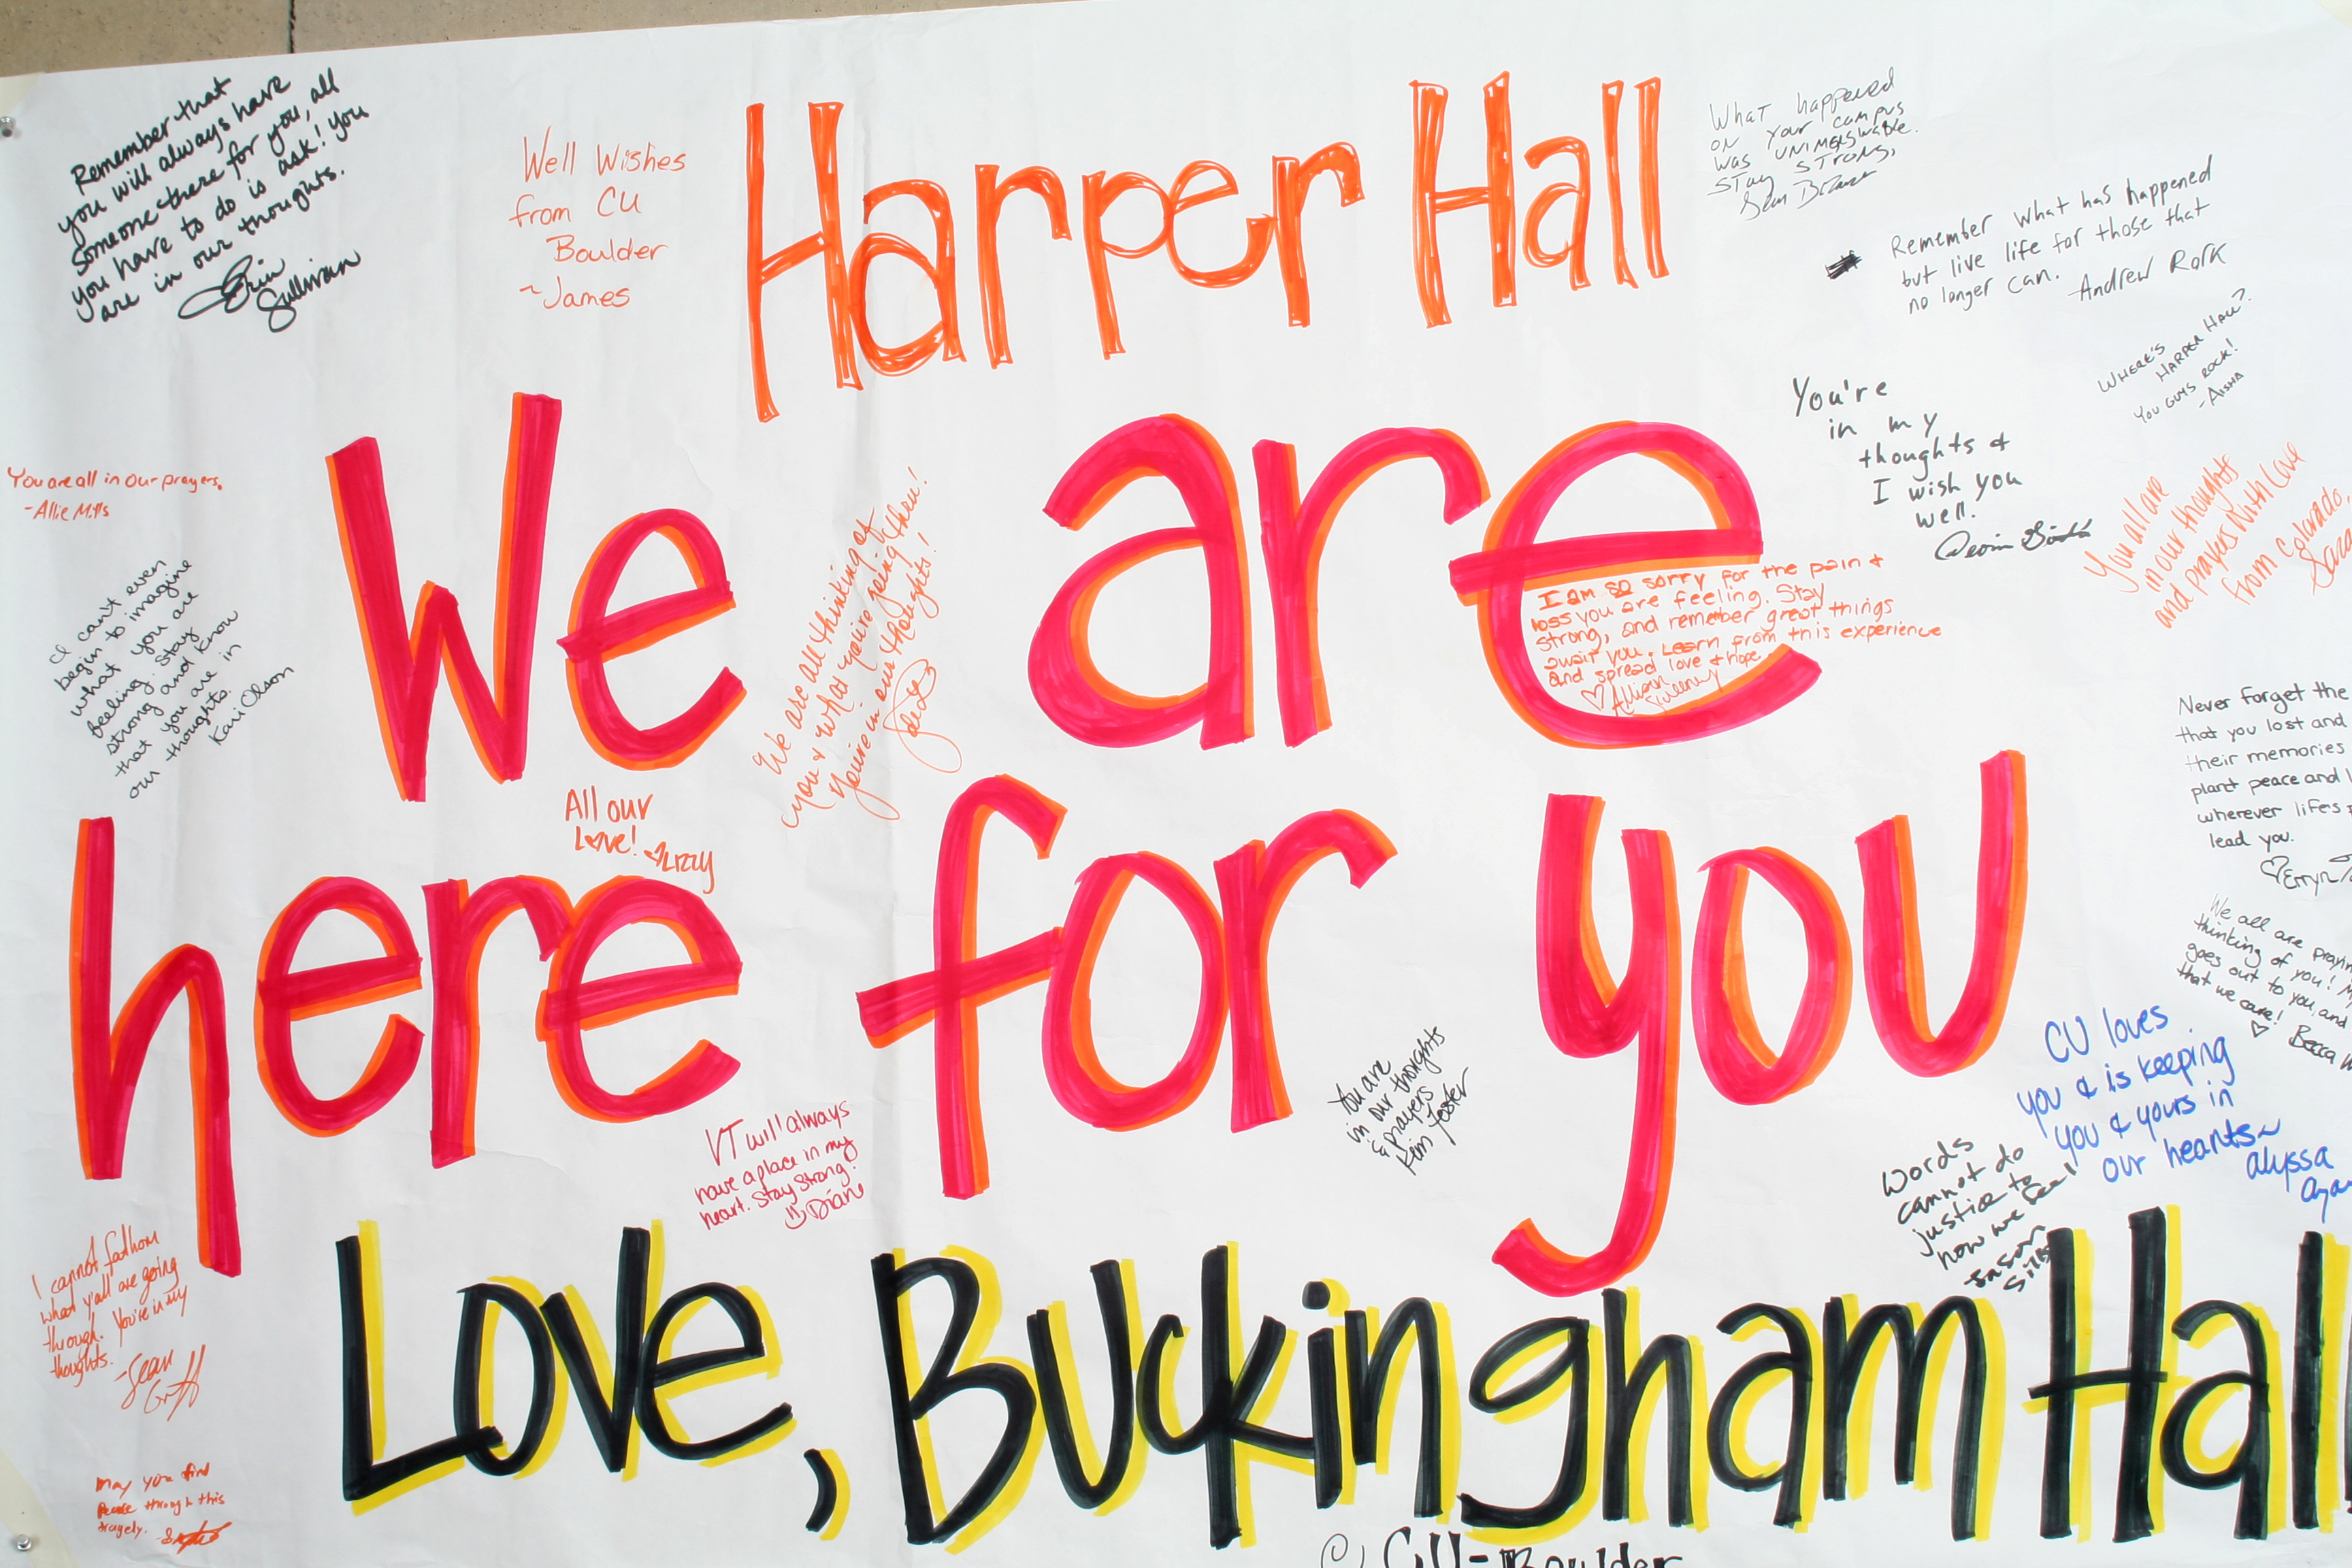 Harper Hall
We are
here for you
Love, Buckingham Hall
@ CU-Boulder
Remember that
you will always have
someone there for you, all
you have to do is ask! You
are in our thoughts.
Erin
Sullivan
Well Wishes
from CU
Boulder
~James
What happened
on your campus
was unimeaswable.
Stay strong,
Sean
Remember what has happened
but live life for those that
no longer can.
-Andrew Rork
Where's
Harper Hall?
You guys rock!
-Aisha
You're
in my
thoughts &
I wish you
well.
Devin
You all are
in our thoughts
and prayers With Love
from Colorado,
You are all in our prayers.
-Allie Mills
I can't even
begin to imagine
what you are
feeling. Stay
strong and know
that you are in
our thoughts.
Kari Olson
We are all thinking of
you & what you're going thru!
You're in our thoughts!
I am so sorry for the pain &
loss you are feeling. Stay
strong, and remember great things
await you. Learn from this experience
and spread love & hope.
♡ Allison
Sweeney
All our
Love!
♡Lizzy
Never forget the
that you lost and
their memories
plant peace and
wherever life's
lead you.
♡Erryn
We all are prayin
thinking of you! M
goes out to you, and
that we care!
♡ Becca
CU loves
you & is keeping
you & yours in
our hearts~
alyssa
Words
cannot do
justice to
how we feel
Jason
You are
in our thoughts
& prayers
Kim Foster
VT will always
have a place in my
heart. Stay Strong!
Diane
I cannot fathom
what y'all are going
through. You're in my
thoughts.
-Sean
Griff
May you find
Peace through this
tragedy.